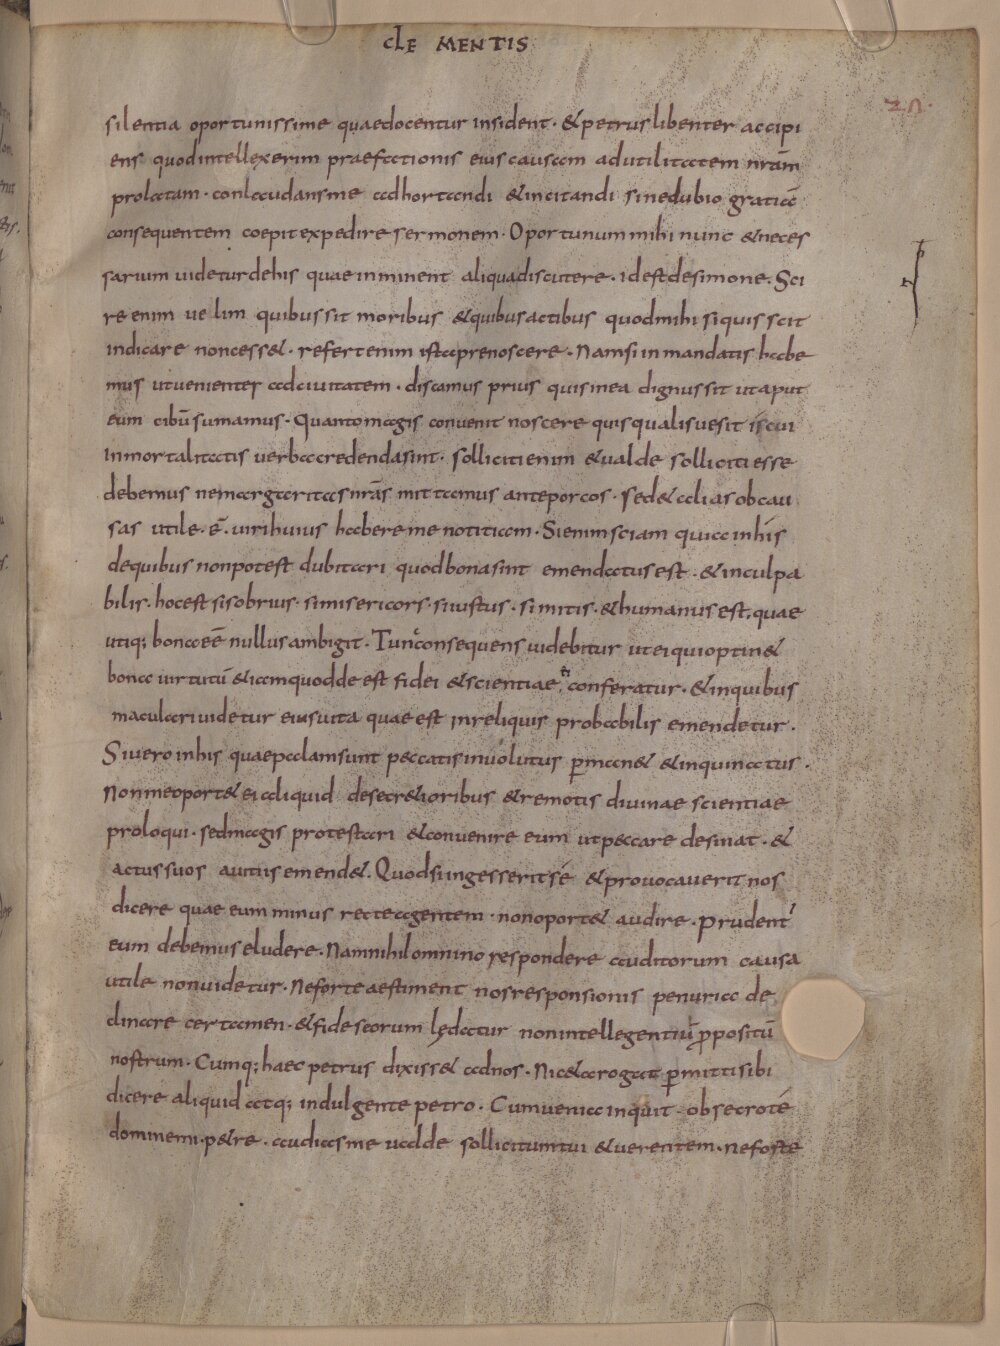 CLE MENTIS
silentia oportunissime quaedocentur insident · & petrus libenter accipi
ens quod intellexerim praefationis eius causam ad utilitatem nr̄am
prolatam · conlaudans me adhortandi & incitandi sine dubio gratiā
consequentem coepit expedire sermonem · Oportunum mihi nunc & neces
sarium uidetur de his quae inminent aliqua discutere · id est de simone · Sci
re enim uelim quibus sit moribus & quibus actibus quod mihi si quis scit
indicare non cess& · refert enim ista prenoscere · Nam si in mandatis habe
mus ut uenienter ad ciuitatem · discamus prius quis in ea dignus sit ut aput
eum cibū sumamus · Quanto magis conuenit noscere quis qualisue sit is cui
inmortalitatis uerba credenda sint · solliciti enim & ualde solliciti esse
debemus ne margaritas nr̄as mittamus ante porcos · sed & alias ob cau
sas utile · ē · uiri huius habere me notitiam · Si enim sciam quia in his
de quibus non potest dubitari quod bona sint emendatus est · & inculpa
bilis · hoc est si sobrius · si misericors · si iustus · si mitis · & humanus est, quae
utiq; bona eē nullus ambigit · Tunc consequens uidebitur ut ei qui optin&
bona uirtutū & iam quod deest fidei & scientiae conferatur · & in quibus
maculari uidetur eius uita quae est in reliquis probabilis emendetur ·
Si uero in his quae palam sunt peccatis inuolutus p̄man& & inquinatus ·
Non me oport& ei aliquid de secr&ioribus & remotis diuinae scientiae
proloqui · sed magis protestari & conuenire eum ut peccare desinat · &
actus suos a uitiis emend& · Quod si ingesserit sé & prouocauerit nos
dicere quae eum minus recte agentem · non oport& audire · prudent'
eum debemus eludere · Nam nihil omnino respondere auditorum causa
utile non uidetur · Ne forte aestiment nos responsionis penuria de
clinare certamen · & fides eorum lędatur non intellegentiū p̄positū
nostrum · Cumq; haec petrus dixiss& ad nos · Nic&a rogat p̄mitti sibi
dicere aliquid atq; indulgente petro · Cum uenia inquit · obsecro té
domine mi · p&re · audias me ualde sollicitum tui & uerentem · ne foste